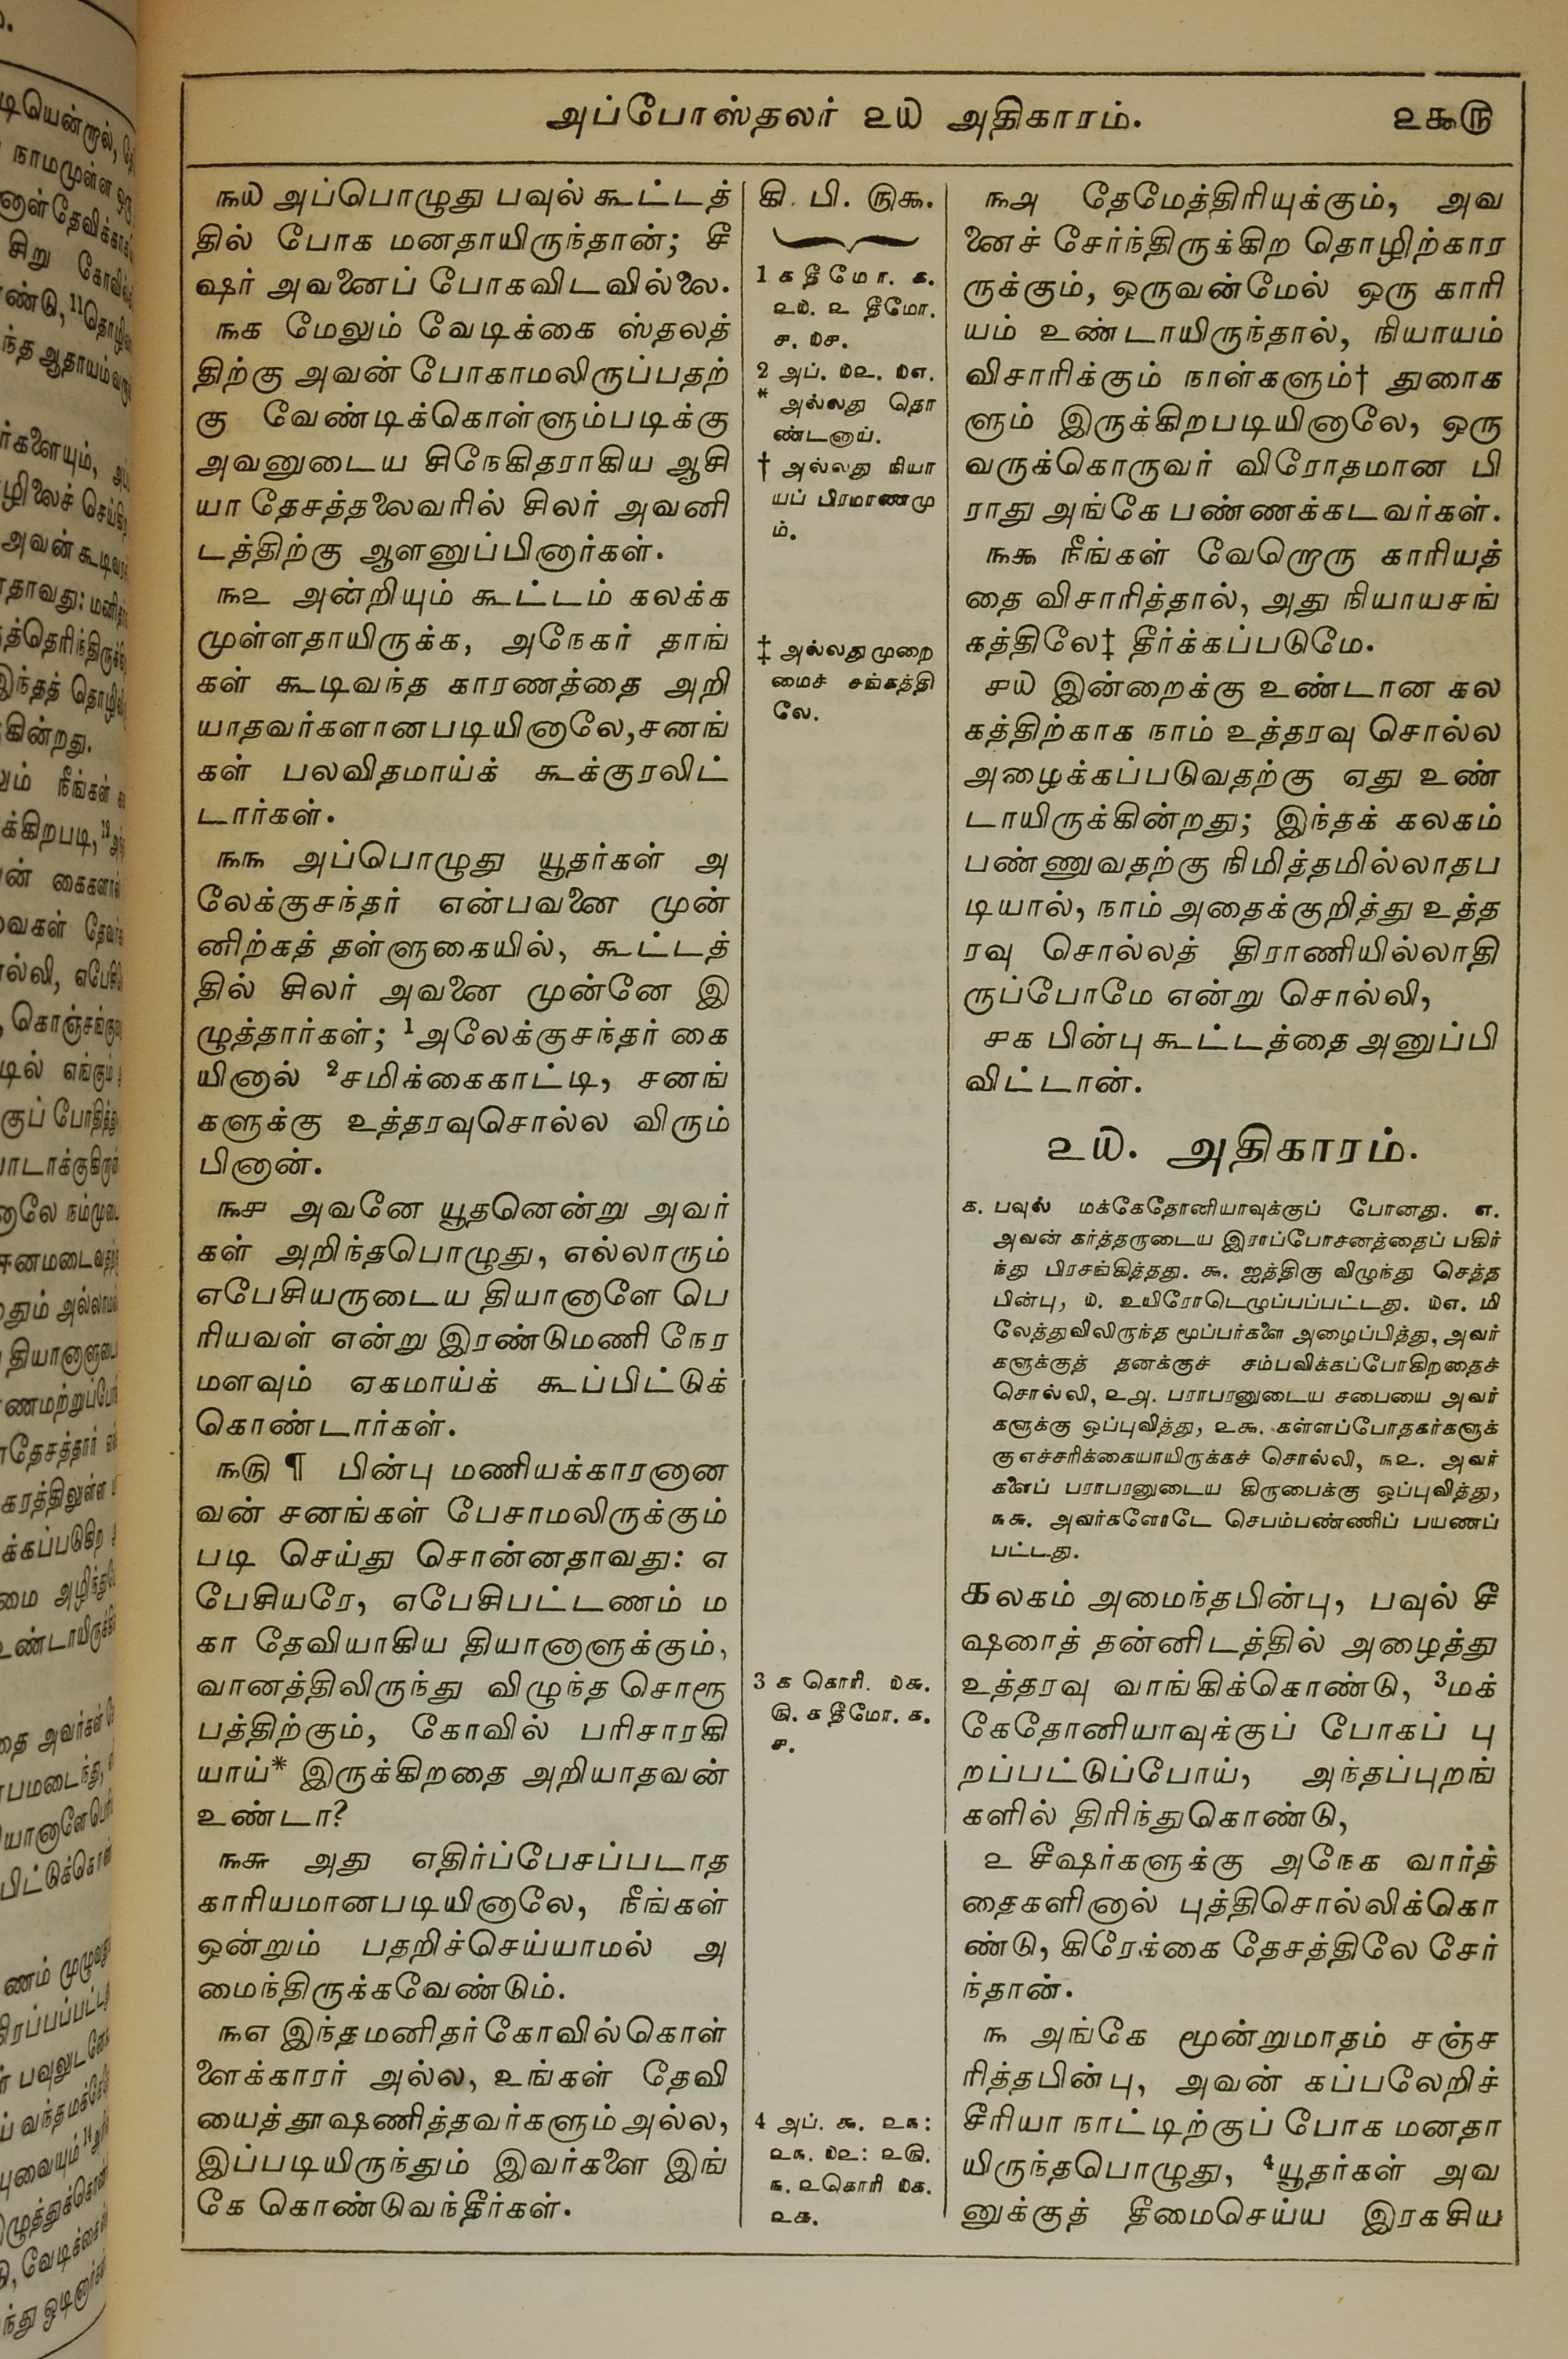 அப்போஸ்தலர் ௨௰ அதிகாரம்.
௨௯௫
௩௰ அப்பொழுது பவுல் கூட்டத்
தில் போக மனதாயிருந்தான்; சீ
ஷர் அவனைப் போகவிடவில்லை.
௩௧ மேலும் வேடிக்கை ஸ்தலத்
திற்கு அவன் போகாமலிருப்பதற்
கு வேண்டிக்கொள்ளும்படிக்கு
அவனுடைய சிநேகிதராகிய ஆசி
யா தேசத்தலைவரில் சிலர் அவனி
டத்திற்கு ஆளனுப்பினார்கள்.
௩௨ அன்றியும் கூட்டம் கலக்க
முள்ளதாயிருக்க, அநேகர் தாங்
கள் கூடிவந்த காரணத்தை அறி
யாதவர்களானபடியினாலே,சனங்
கள் பலவிதமாய்க் கூக்குரலிட்
டார்கள்.
௩௩ அப்பொழுது யூதர்கள் அ
லேக்குசந்தர் என்பவனை முன்
னிற்கத் தள்ளுகையில், கூட்டத்
தில் சிலர் அவனை முன்னே இ
ழுத்தார்கள்; 1அலேக்குசந்தர் கை
யினால் 2சமிக்கைகாட்டி, சனங்
களுக்கு உத்தரவுசொல்ல விரும்
பினான்.
௩௪ அவனே யூதனென்று அவர்
கள் அறிந்தபொழுது, எல்லாரும்
எபேசியருடைய தியானாளே பெ
ரியவள் என்று இரண்டுமணி நேர
மளவும் ஏகமாய்க் கூப்பிட்டுக்
கொண்டார்கள்.
௩௫ ¶ பின்பு மணியக்காரனான
வன் சனங்கள் பேசாமலிருக்கும்
படி செய்து சொன்னதாவது: எ
பேசியரே, எபேசிபட்டணம் ம
கா தேவியாகிய தியானாளுக்கும்,
வானத்திலிருந்து விழுந்த சொரூ
பத்திற்கும், கோவில் பரிசாரகி
யாய்* இருக்கிறதை அறியாதவன்
உண்டா?
௩௬ அது எதிர்ப்பேசப்படாத
காரியமானபடியினாலே, நீங்கள்
ஒன்றும் பதறிச்செய்யாமல் அ
மைந்திருக்கவேண்டும்.
௩௭ இந்தமனிதர்கோவில்கொள்
ளைக்காரர் அல்ல, உங்கள் தேவி
யைத்தூஷணித்தவர்களும் அல்ல,
இப்படியிருந்தும் இவர்களை இங்
கே கொண்டுவந்தீர்கள்.
கி. பி. ௫௯.
1 ௧ தீமோ. ௧.
௨௰. ௨ தீமோ.
௪. ௰௪.
2 அப். ௰௨. ௰௭.
* அல்லது தொ
ண்டனாய்.
† அல்லது நியா
யப் பிரமாணமு
ம்.
‡ அல்லது முறை
மைச் சங்கத்தி
லே.
3 ௧ கொரி. ௰௬.
௫. ௧ தீமோ. ௧.
௪.
4 அப். ௯. ௨௩:
௨௩. ௰௨: ௨௫.
௩. ௨கொரி ௰௧.
௨௬.
௩௮ தேமேத்திரியுக்கும், அவ
னைச் சேர்ந்திருக்கிற தொழிற்கார
ருக்கும், ஒருவன்மேல் ஒரு காரி
யம் உண்டாயிருந்தால், நியாயம்
விசாரிக்கும் நாள்களும்† துரைக
ளும் இருக்கிறபடியினாலே, ஒரு
வருக்கொருவர் விரோதமான பி
ராது அங்கே பண்ணக்கடவர்கள்.
௩௯ நீங்கள் வேறொரு காரியத்
தை விசாரித்தால், அது நியாயசங்
கத்திலே‡ தீர்க்கப்படுமே.
௪௰ இன்றைக்கு உண்டான கல
கத்திற்காக நாம் உத்தரவு சொல்ல
அழைக்கப்படுவதற்கு ஏது உண்
டாயிருக்கின்றது; இந்தக் கலகம்
பண்ணுவதற்கு நிமித்தமில்லாதப
டியால், நாம் அதைக்குறித்து உத்த
ரவு சொல்லத் திராணியில்லாதி
ருப்போமே என்று சொல்லி,
௪௧ பின்பு கூட்டத்தை அனுப்பி
விட்டான்.
௨௰. அதிகாரம்.
௧. பவுல் மக்கேதோனியாவுக்குப் போனது. ௭.
அவன் கர்த்தருடைய இராப்போசனத்தைப் பகிர்
ந்து பிரசங்கித்தது. ௯. ஐத்திகு விழுந்து செத்த
பின்பு, ௰. உயிரோடெழுப்பப்பட்டது. ௰௭. மி
லேத்துவிலிருந்த மூப்பர்களை அழைப்பித்து, அவர்
களுக்குத் தனக்குச் சம்பவிக்கப்போகிறதைச்
சொல்லி, ௨௮. பராபரனுடைய சபையை அவர்
களுக்கு ஒப்புவித்து, ௨௯. கள்ளப்போதகர்களுக்
கு எச்சரிக்கையாயிருக்கச் சொல்லி, ௩௨. அவர்
களைப் பராபரனுடைய கிருபைக்கு ஒப்புவித்து,
௩௬. அவர்களோடே செபம்பண்ணிப் பயணப்
பட்டது.
கலகம் அமைந்தபின்பு, பவுல் சீ
ஷரைத் தன்னிடத்தில் அழைத்து
உத்தரவு வாங்கிக்கொண்டு, 3மக்
கேதோனியாவுக்குப் போகப் பு
றப்பட்டுப்போய், அந்தப்புறங்
களில் திரிந்துகொண்டு,
௨ சீஷர்களுக்கு அநேக வார்த்
தைகளினால் புத்திசொல்லிக்கொ
ண்டு, கிரேக்கை தேசத்திலே சேர்
ந்தான்.
௩ அங்கே மூன்றுமாதம் சஞ்ச
ரித்தபின்பு, அவன் கப்பலேறிச்
சீரியா நாட்டிற்குப் போக மனதா
யிருந்தபொழுது, 4யூதர்கள் அவ
னுக்குத் தீமைசெய்ய இரகசிய